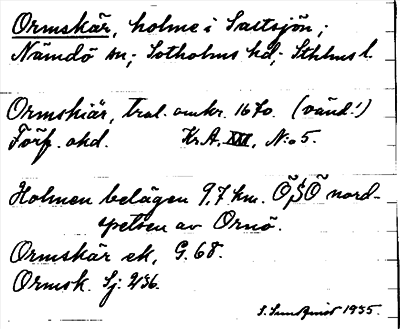 Ormskär, holme i Saltsjön;
Nämdö sn; Sotholms hd; Sthlms l.
Ormskiär, trol. omkr. 1670. (vänd!)
Förf. okd. Kr.A. XXI, N:o 5.
Holmen belägen 9,7 km. ÖSÖ nord-
spetsen av Ornö.
Ormskär ek, G.68.
Ormsk. Sj: 236.
S. Sundqvist 1935.